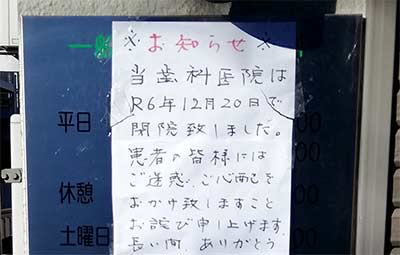 ※お知らせ※
当歯科医院は
R6年12月20日で
閉院致しました。
患者の皆様には
ご迷惑、ご心配を
おかけ致しますこと
お詫び申し上げます
長い間、ありがとう
一般
平日
休憩
土曜日
00
00
00